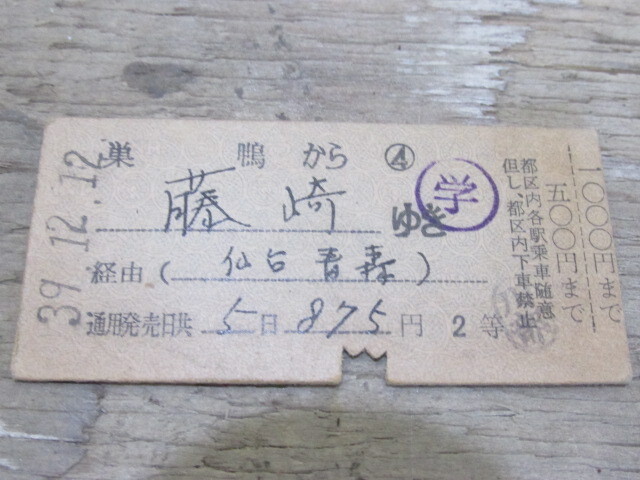 39.12.12
巣鴨から ④
藤崎ゆき
学
経由(仙台青森)
通用発売日共5日875円 2等
都区内各駅乗車随意
但し、都区内下車禁止
五〇〇円まで
一〇〇〇円まで